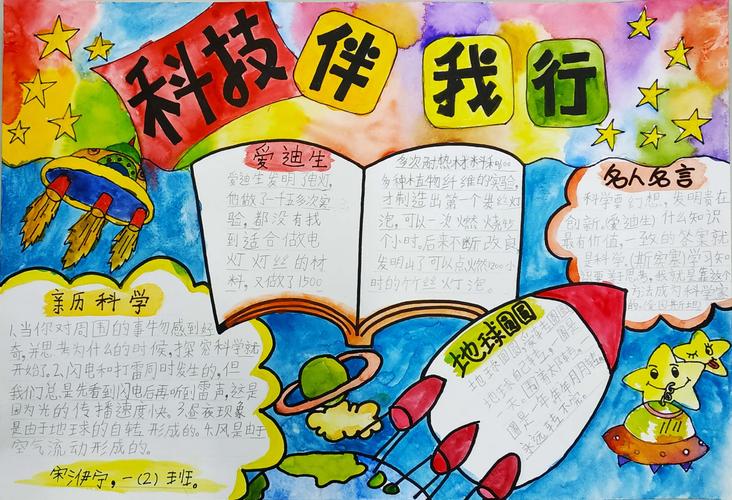 科技伴我行
爱迪生
爱迪生发明了电灯,
他做了一千五多次实
验,都没有找
到适合做电
灯灯丝的材
料,又做了1500
多次耐热材料和600
多种植物纤维的实验,
才制造出第一个炭丝灯
泡,可以一次燃烧45
个小时。后来不断改良
发明出了可以点燃1200小
时的竹丝灯泡。
名人名言
科学要幻想,发明贵在
创新。(爱迪生)什么知识
最有价值,一致的答案就
是科学。(斯宾塞)学习知
识要善于思考,我就是靠这个
方法成为科学家
的。(爱因斯坦)
亲历科学
1.当你对周围的事物感到好
奇,并思考为什么的时候,探究科学就
开始了。2.闪电和打雷同时发生的,但
我们总是先看到闪电后再听到雷声,这是
因为光的传播速度快。3.昼夜现象
是由于地球的自转形成的。4.风是由于
空气流动形成的。
宋伊宁,一(2)班。
地球圆圆